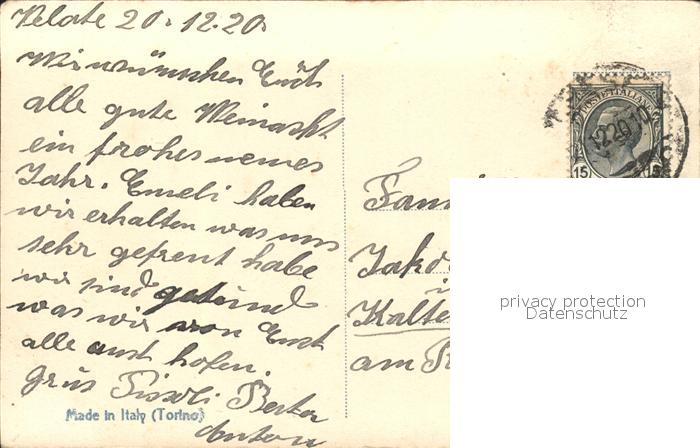 Velate 20.12.20.
Wir wünschen Euch
alle gute Weinacht
ein frohes neues
Jahr. Emeli haben
wir erhalten was uns
sehr gefreut habe
wir sind gesund
was wir von Euch
alle auch hofen.
Grüs Berta
Anton
Made in Italy (Torino)
POSTE ITALIANE
15 15
Fam
Jak
Kalte
am R
privacy protection
Datenschutz